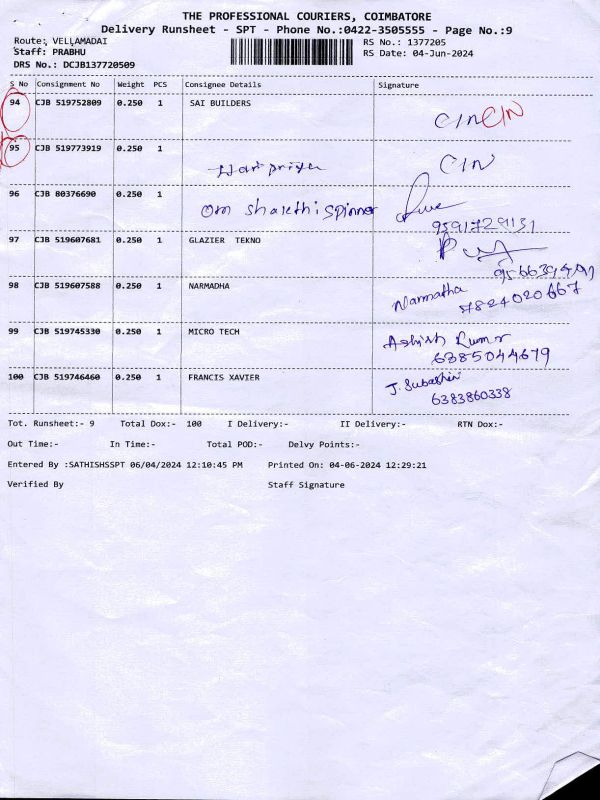 THE PROFESSIONAL COURIERS, COIMBATORE
Delivery Runsheet - SPT - Phone No.:0422-3505555 - Page No.:9
Route: VELLAMADAI RS No.: 1377205
Staff: PRABHU RS Date: 04-Jun-2024
DRS No.: DCJB137720509
S No Consignment No Weight PCS Consignee Details Signature
94 CJB 519752809 0.250 1 SAI BUILDERS CIN CIN
95 CJB 519773919 0.250 1 Haripriya CIN
96 CJB 80376690 0.250 1 Om Shakthi Spinner 9591729131
97 CJB 519607681 0.250 1 GLAZIER TEKNO
98 CJB 519607588 0.250 1 NARMADHA Narmatha 7824020667
99 CJB 519745330 0.250 1 MICRO TECH Ashish Kumar
6385044679
100 CJB 519746460 0.250 1 FRANCIS XAVIER J. Subashini
6383860338
Tot. Runsheet:- 9 Total Dox:- 100 I Delivery:- II Delivery:- RTN Dox:-
Out Time:- In Time:- Total POD:- Delvy Points:-
Entered By :SATHISHSSPT 06/04/2024 12:10:45 PM Printed On: 04-06-2024 12:29:21
Verified By Staff Signature